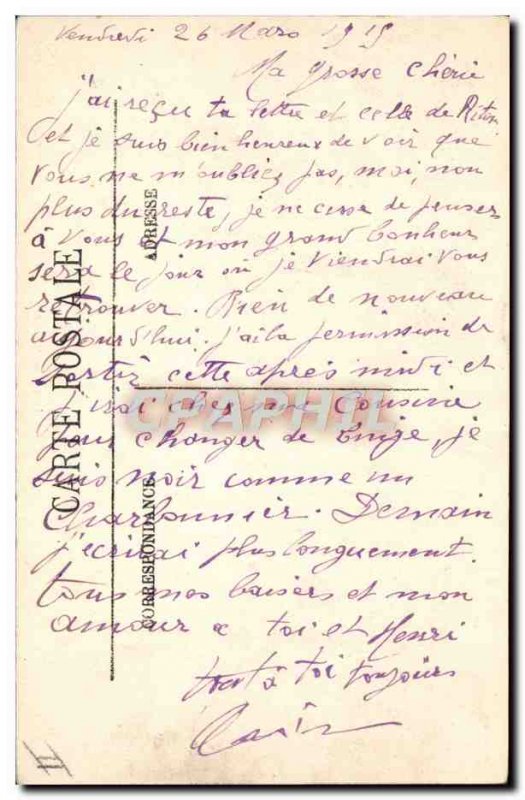 Vendredi 26 Mars 1915
Ma grosse chérie
j'ai reçu ta lettre et celle de
et je suis bien heureux de voir que
vous ne m'oubliez pas, moi, non
plus du reste, je ne cesse de penser
à vous et mon grand bonheur
sera le jour où je viendrai vous
retrouver. Rien de nouveau
aujourd'hui. j'ai la permission de
sortir cette après midi et
j'irai chez ma Cousine
pour changer de linge, je
suis noir comme un
Charbonnier. Demain
j'écrirai plus longuement.
tous mes baisers et mon
amour à toi et Henri
tout à toi toujours
CARTE POSTALE
ADRESSE
CORRESPONDANCE
CPAPHIL